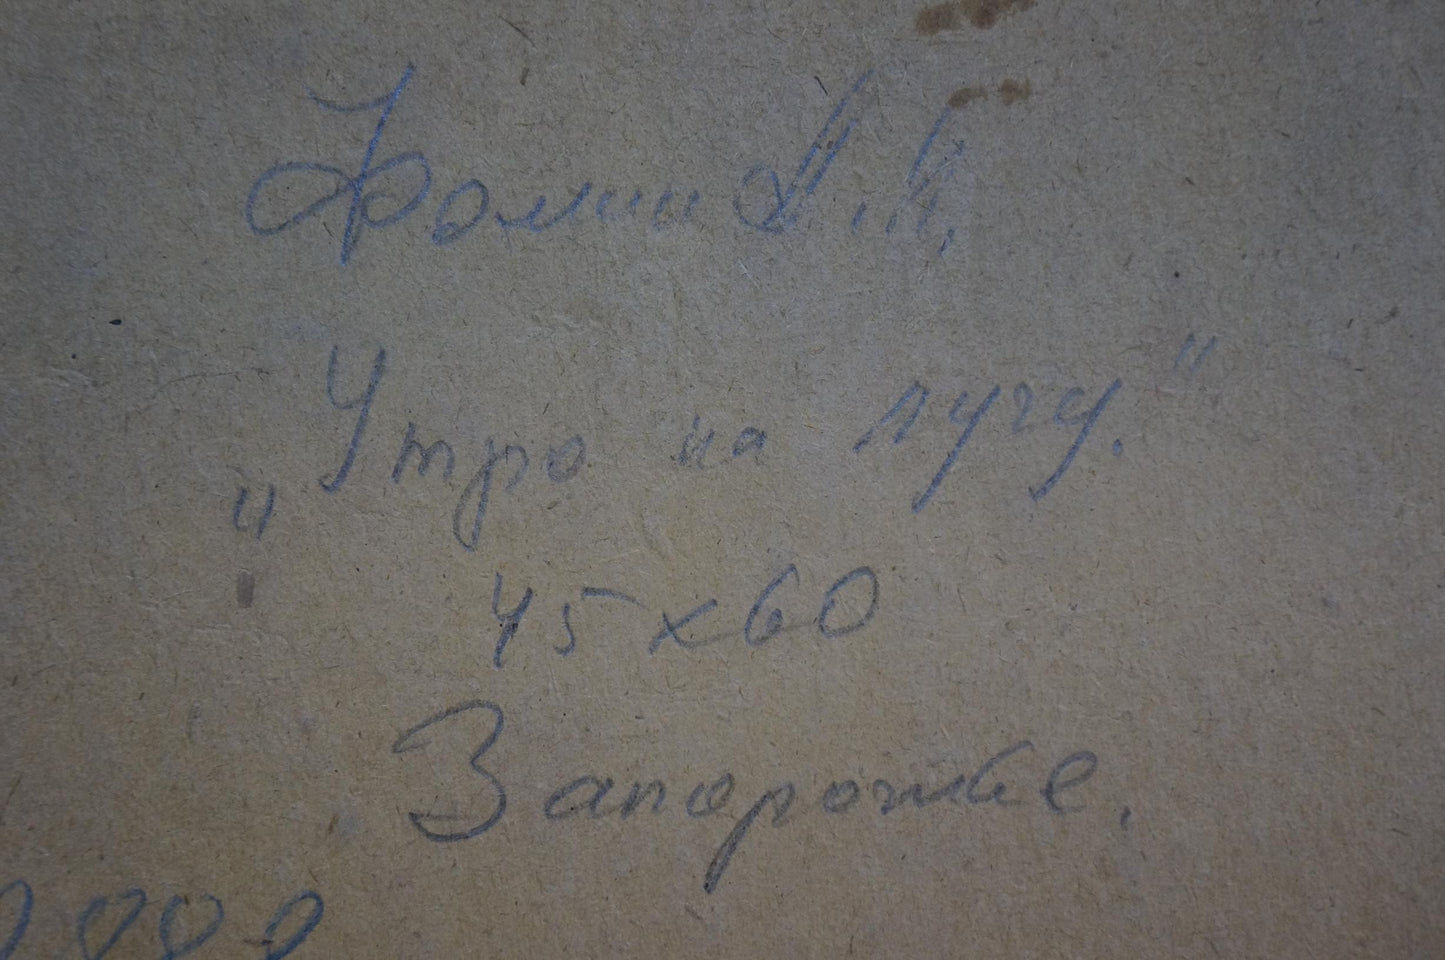 Фомин А.П.
„Утро на лугу."
45х60
Запорожье.